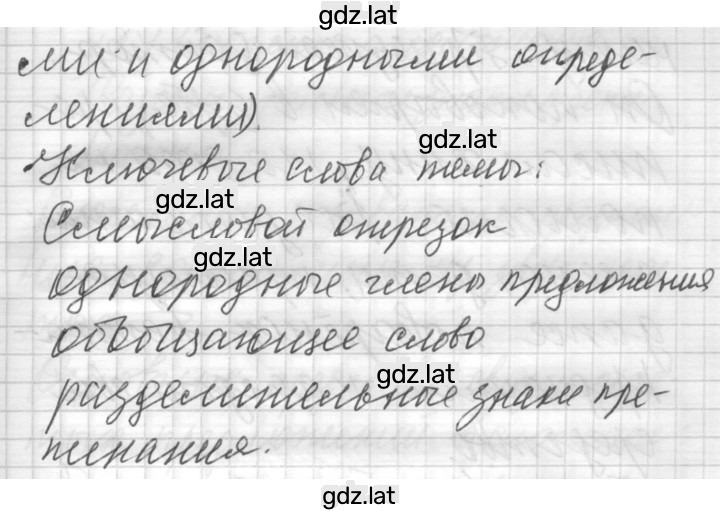 gdz.lat
ми и однородными опреде-
лениями).
gdz.lat
• Ключевые слова темы:
gdz.lat
Смысловой отрезок
gdz.lat
однородные члены предложения
обобщающее слово
gdz.lat
разделительные знаки пре-
пинания.
gdz.lat